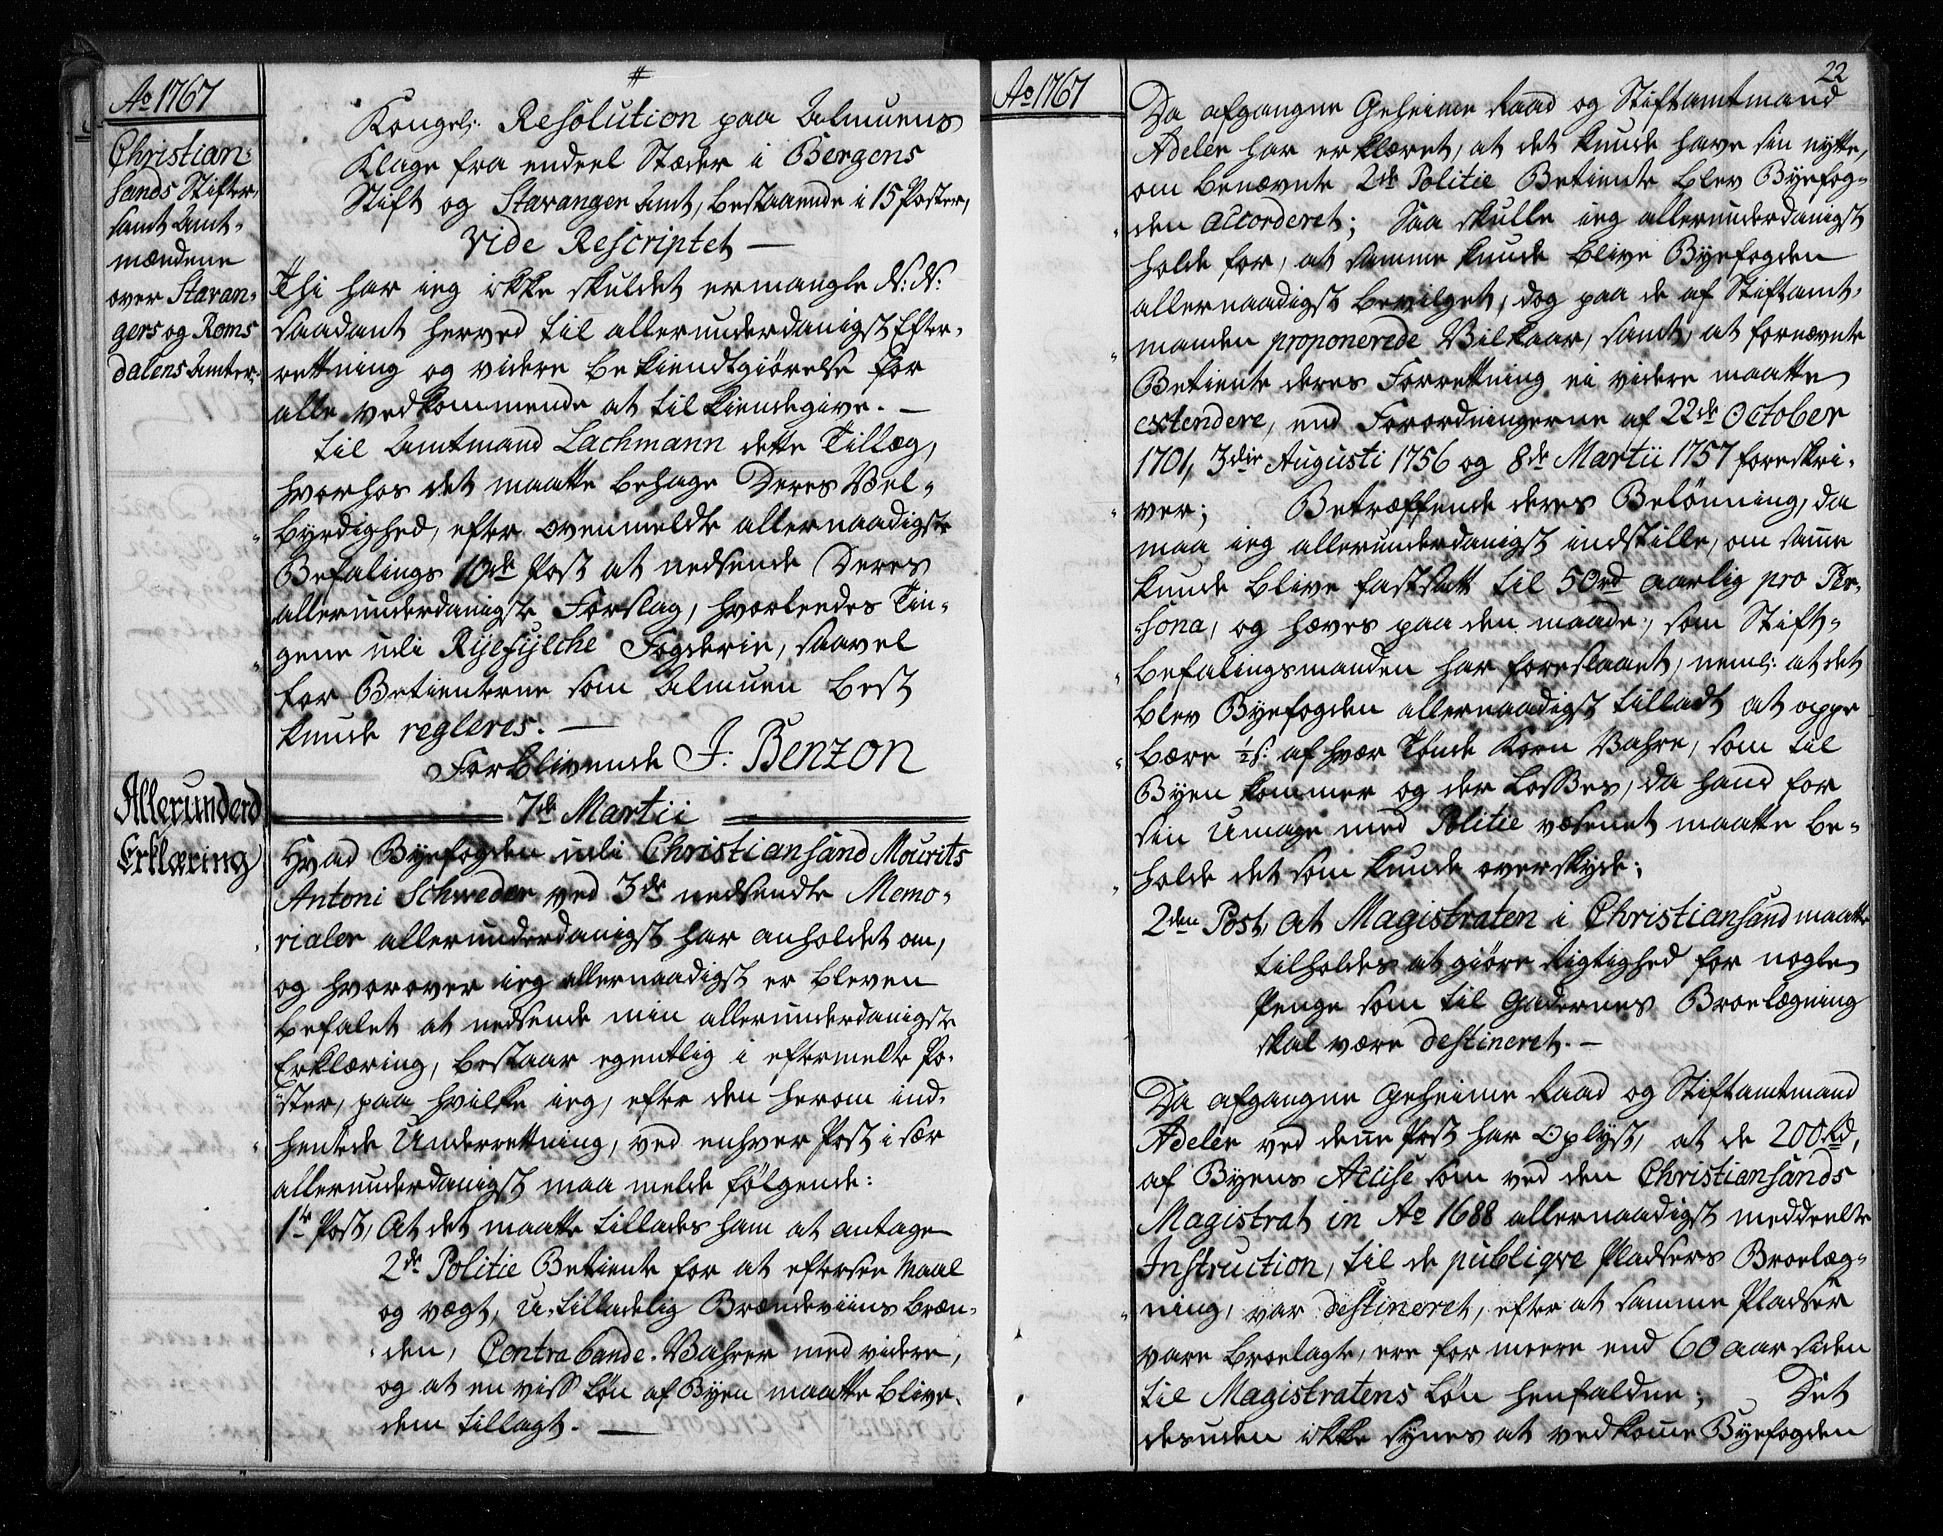 Ao 1767
Christian=
sands Stifter,
samt Amt=
mændene
over Stavan=
gers og Roms
dalens Amter.
#
Kongel: Resolution paa Almuens
Klage fra endeel Stæder i Bergens
Stift og Stavanger Amt, bestaaende i 15 Poster,
vide Rescriptet —
Thi har ieg ikke skuldet ermangle N: N:
saadant herved til allerunderdanigst Efter=
rettning og videre bekiendtgiørelse for
alle vedkommende at tilkiendegive. —
til Amtmand Lachmann dette Tillæg,
hvorhos det maatte behage Deres Vel=
byrdighed, efter ovenmeldte allernaadigste
Befalings 10de Post at nedsende Deres
allerunderdanigste Forslag, hvorledes Tin=
gene udi Ryefylche Fogderie, saavel
for Betienterne som Almuen best
kunde regleres. —
Forblivende J. Benzon
Allerunderd
Erklæring
7de Martii
Hvad Byefogden udi Christiansand Mourits
Antoni Schweder ved 3de nedsendte Memo=
rialer allerunderdanigst har anholdet om,
og hvorover ieg allernaadigst er bleven
befalet at nedsende min allerunderdanigste
Erklæring, bestaar egentlig i eftermelte Po=
ster, paa hvilke ieg, efter den herom ind=
hentede Underrettning, ved enhver Post i sær
allerunderdanigst maa melde følgende:
1te Post, At det maatte tillades ham at antage
2de Politie Betiente for at eftersee Maal
og vægt, u-tilladelig Brændeviins bræn=
den, Contrabande-Vahrer med videre,
og at en viss Løn af Byen maatte blive
dem tillagt. —
Ao 1767
22
Da afgangne Geheime Raad og Stiftamtmand
Adeler har erklæret, at det kunde have sin nytte,
om benævnte 2de Politie Betiente blev Byefog=
den accorderet; Saa skulle ieg allerunderdanigst
holde for, at samme kunde blive Byefogden
allernaadigst bevilget, dog paa de af Stiftamt=
manden proponerede Vilkaar, samt, at fornævnte
Betiente deres Forrettning ei videre maatte
extendere, end Forordningerne af 22de October
1701, 3die Augusti 1756 og 8de Martii 1757 foreskri=
ver; Betræffende deres Belønning, da
maa ieg allerunderdanigst indstille, om same
kunde blive fastsatt til 50 rd aarlig pro Per=
sona, og hæves paa den maade, som Stift=
befalingsmanden har foreslaaet, neml: at det
blev Byefogden allernaadigst tilladt at oppe
bære ½ s: af hver Tønde Korn Vahre, som til
Byen kommer og der losses, da hand for
sin Umage med Politie væsenet maatte be=
holde det som kunde overskyde;
2den Post, At Magistraten i Christiansand maatte
tilholdes at giøre Rigtighed for nogle
Penge som til Gadernes Broelægning
skal være destineret. —
Da afgangne Geheime Raad og Stiftamtmand
Adeler ved dene Post har oplyst, at de 200 Rd,
af Byens Accise som ved den Christiansands
Magistrat in Ao 1688 allernaadigst meddeelte
Instruction, til de publiqve Pladsers Broelæg=
ning, var destineret, efter at samme Pladser
vare broelagte, ere for meere end 60 aar siden
til Magistratens Løn henfaldne; Det
desuden ikke synes at vedkome Byefogden